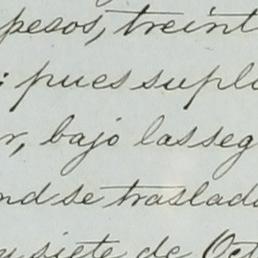 pesos, treint
: pues suplo
r, bajo las seg
nd se traslad
y siete de Oct